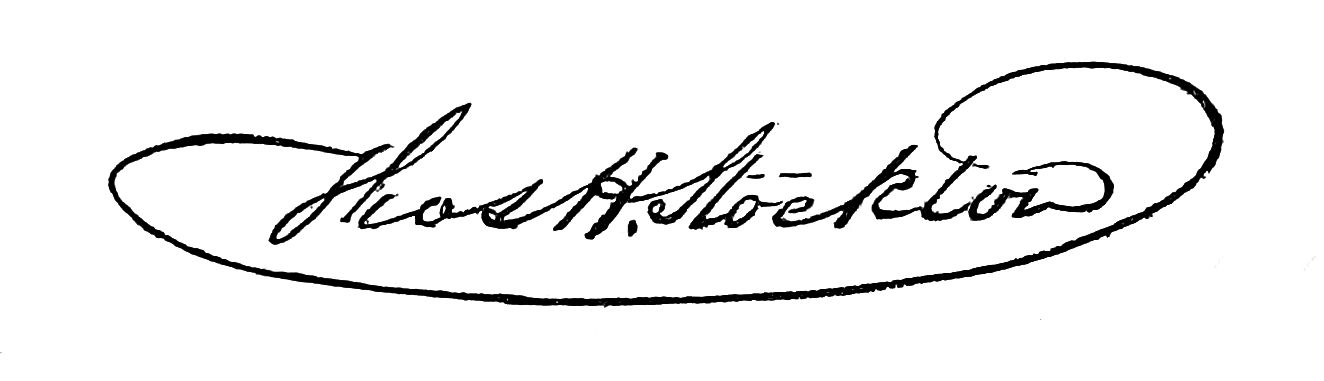 Thos H. Stockton